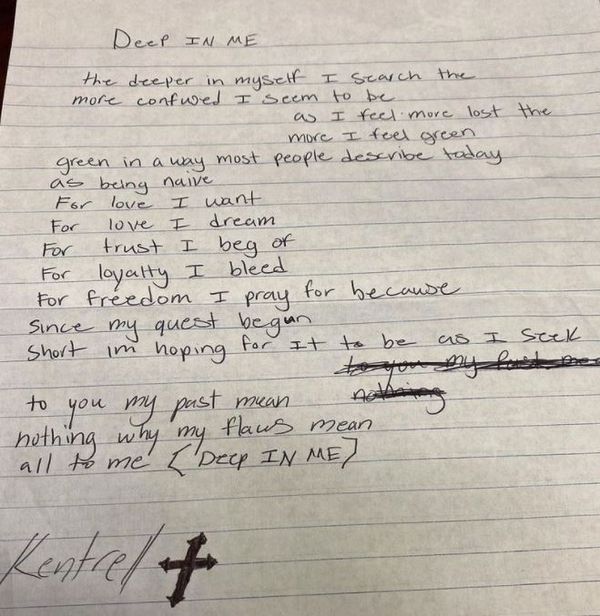 Deep IN ME
the deeper in myself I search the
more confused I seem to be
as I feel more lost the
more I feel green
green in a way most people describe today
as being naive
For love I want
For love I dream
For trust I beg of
For loyalty I bleed
For freedom I pray for because
since my quest begun
short im hoping for It to be as I seek
to you my past mean
nothing
to you my past mean
nothing why my flaws mean
all to me ["Deep IN ME]
Kentrell